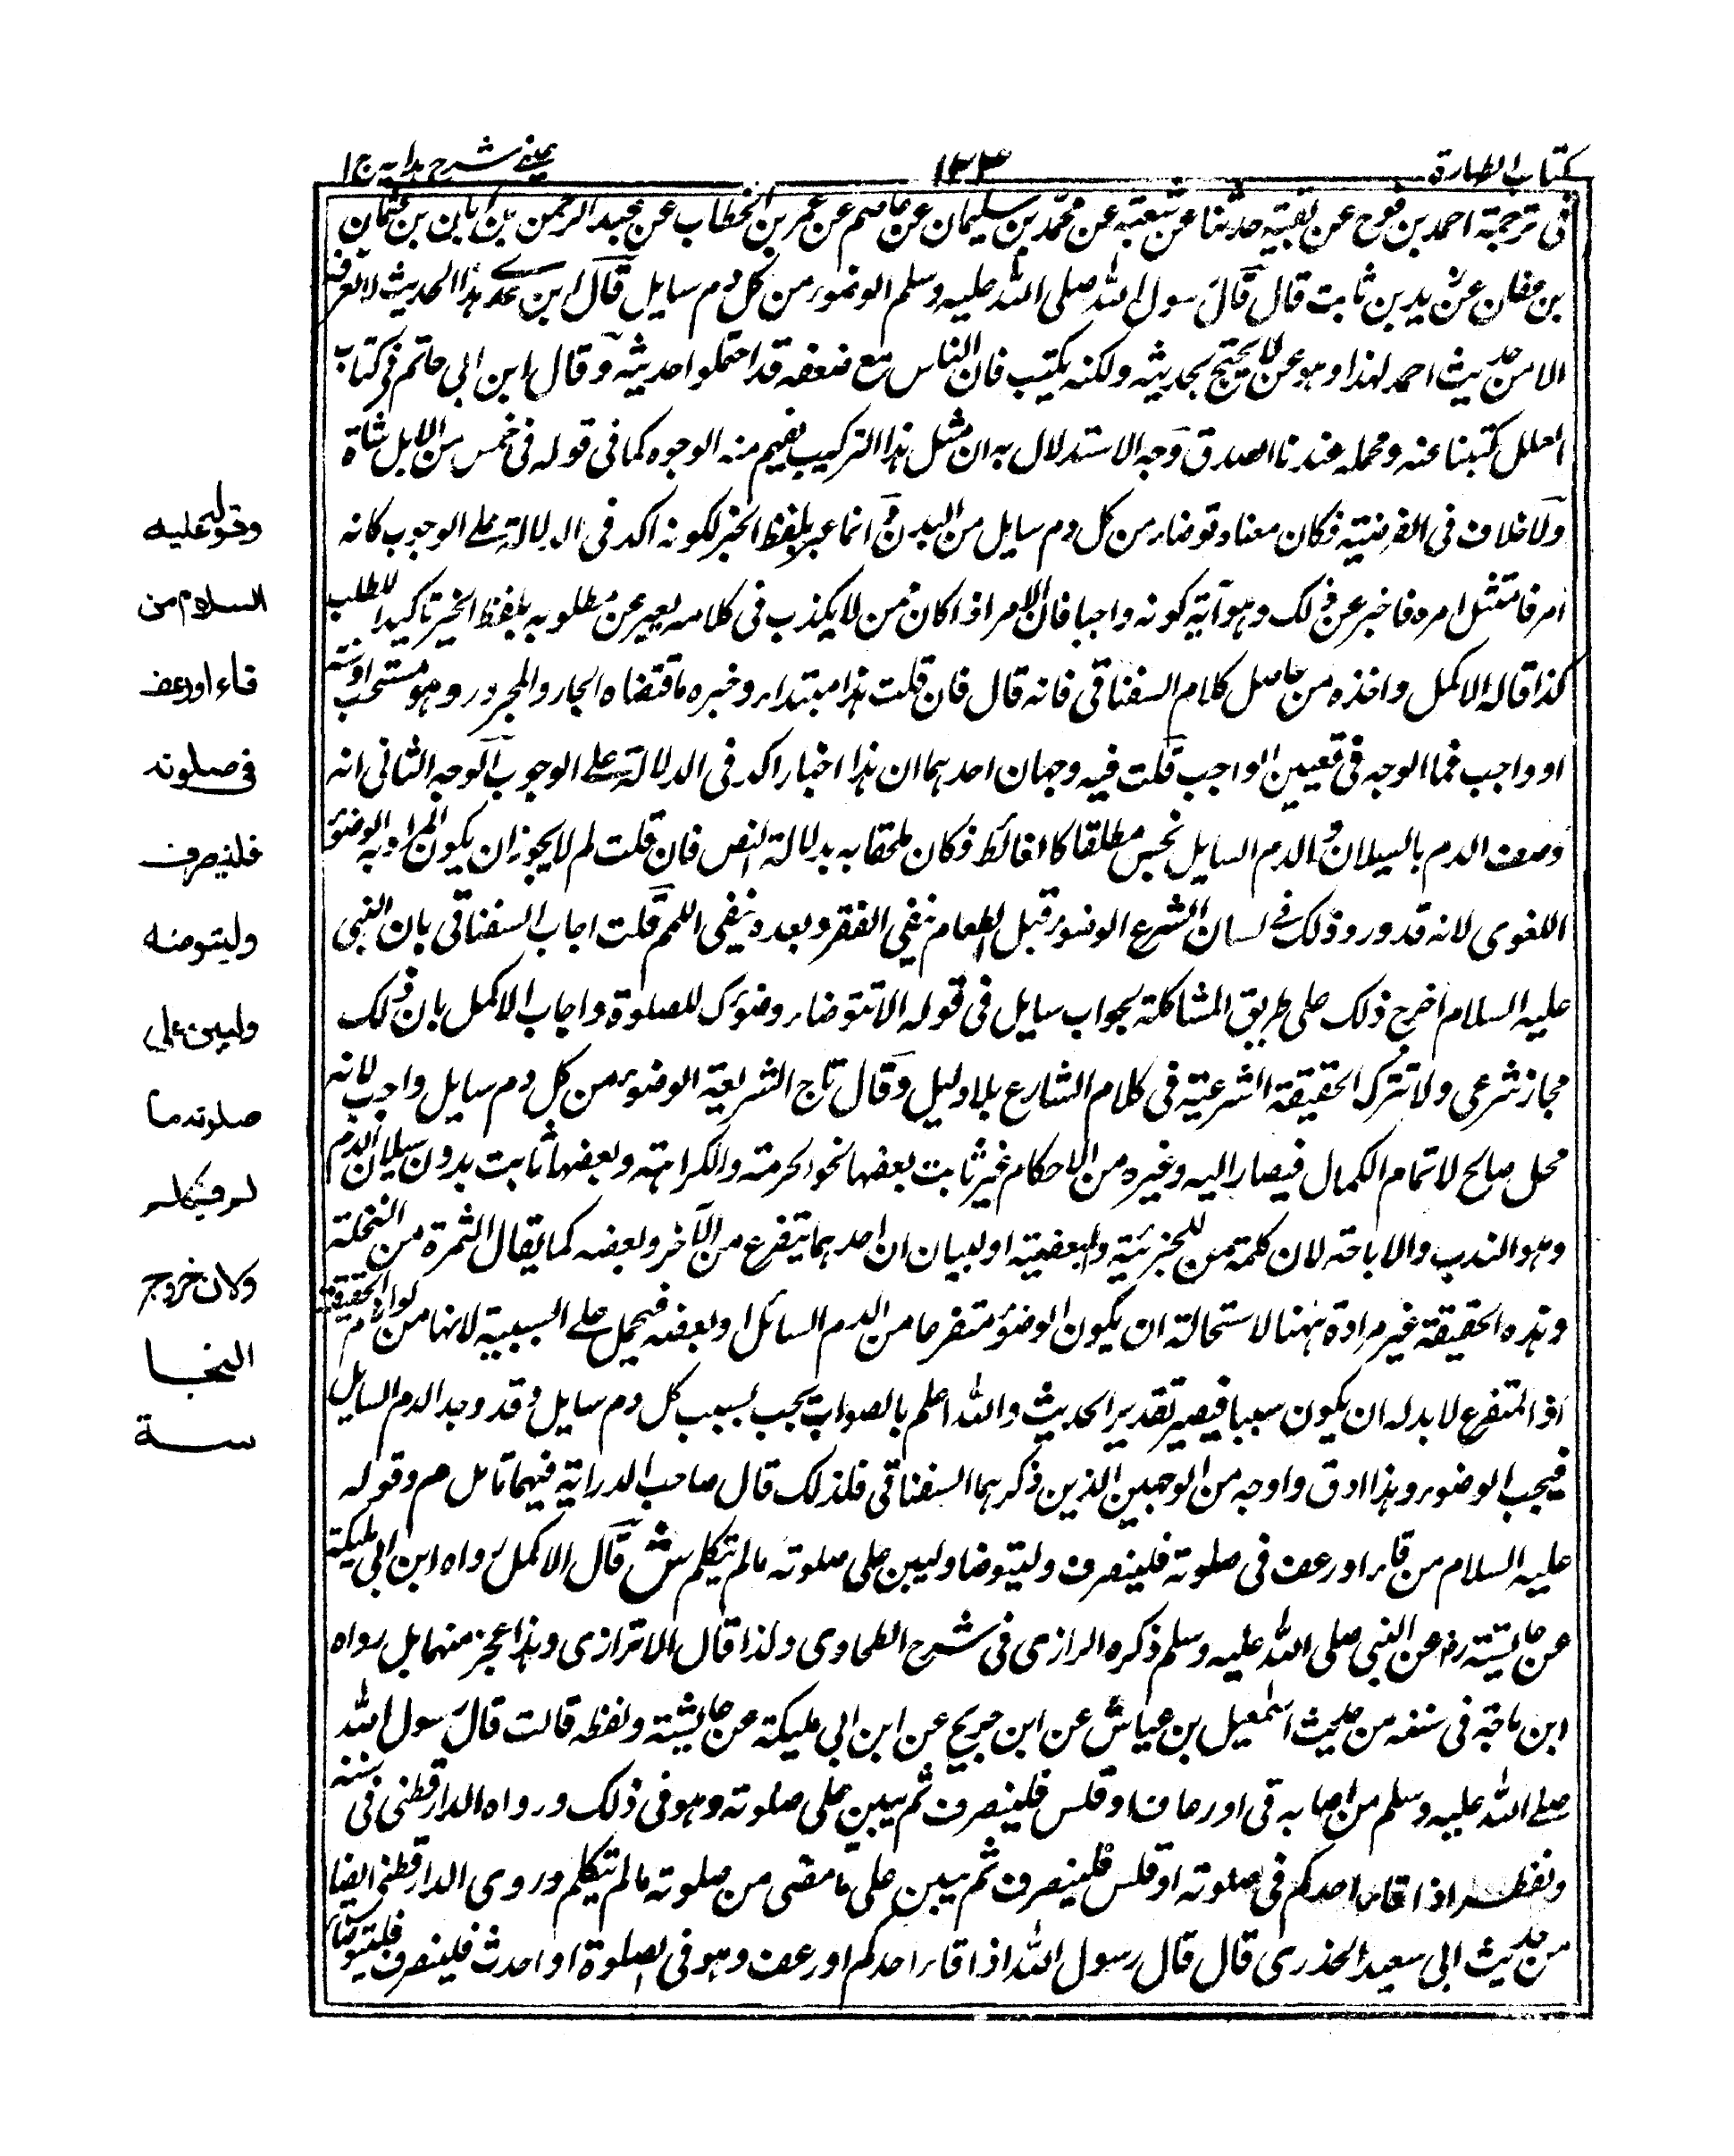 كتاب الطهارة
١٣٤
عينى شرح هداية ج ١
فى ترجمة احمد بن فرح عن بقية حدثنا عن شعبة عن محمد بن سليمان عن عاصم عن عمر بن الخطاب عن عبد الرحمن بن ابان بن عثمان
بن عفان عن زيد بن ثابت قال قال رسول الله صلى الله عليه وسلم الوضوء من كل دم سايل قال ابن عدى هذا الحديث لا نعرفه
الا من حديث احمد لهذا وهو ممن لا يحتج بحديثه ولكنه يكتب فان الناس مع ضعفه قد احتملوا حديثه وقال ابن ابى حاتم فى كتاب
العلل كتبنا عنه ومحله عندنا الصدق وجه الاستدلال به ان مثل هذا التركيب يفهم منه الوجوه كما فى قوله فى خمس من الابل شاة
ولا خلاف فى الفرضية فكان معناه توضاء من كل دم سايل من البدن وانما عبر بلفظ الخبر لكونه اكد فى الدلالة على الوجوب كانه
امر فامتثل امره فاخبر عن ذلك وهو آية كونه واجبا فان الامر اذا كان ممن لا يكذب فى كلامه يعبر عن مطلوبه بلفظ الخبر تاكيدا للطلب
كذا قاله الاكمل واخذه من حاصل كلام السغناقى فانه قال فان قلت هذا مبتداء وخبره ما قتضاه الجار والمجرور وهو مستحب او سنة
او واجب فما الوجه فى تعيين الواجب قلت فيه وجهان احدهما ان هذا اخبار اكد فى الدلالة على الوجوب الوجه الثانى انه
وصف الدم بالسيلان والدم السايل نجس مطلقا كالغائط فكان ملحقا به بدلالة النص فان قلت لم لا يجوز ان يكون المراد به الوضوء
اللغوى لانه قد ورد ذلك فى لسان الشرع الوضوء قبل الطعام ينفى الفقر وبعده ينفى اللمم قلت اجاب السغناقى بان النبى
عليه السلام اخرج ذلك على طريق المشاكلة بجواب سايل فى قوله الا تتوضاء وضوءك للصلوة واجاب الاكمل بان ذلك
مجاز شرعى ولا تترك الحقيقة الشرعية فى كلام الشارع بلا دليل وقال تاج الشريعة الوضوء من كل دم سايل واجب لانه
محل صالح لاتمام الكمال فيصار اليه وغيره من الاحكام غير ثابت بعضها نحو الحرمة والكراهة وبعضها ثابت بدون سيلان الدم
وهو الندب والاباحة لان كلمة من للجزئية والبعضية او لبيان ان احدهما يتفرع من الآخر وبعضه كما يقال الثمرة من النخلة
وهذه الحقيقة غير مرادة ههنا لاستحالة ان يكون الوضوء متفرعا من الدم السائل او بعضه فيحمل على السببية لانها من لوازم الحقيقة
اذ المتفرع لا بد له ان يكون سببا فيصير تقدير الحديث والله اعلم بالصواب يجب بسبب كل دم سايل وقد وجد الدم السايل
فيجب الوضوء وهذا ادق واوجه من الوجهين الذين ذكرهما السغناقى فلذلك قال صاحب الدراية فيهما تامل م وقوله
عليه السلام من قاء او رعف فى صلوته فلينصرف وليتوضا وليبن على صلوته ما لم يتكلم ش قال الاكمل رواه ابن ابى مليكة
عن عايشة رض عن النبى صلى الله عليه وسلم ذكره الرازى فى شرح الطحاوى ولذا قال الاترازى وهذا عجز منهما بل رواه
ابن ماجة فى سننه من حديث اسمعيل بن عياش عن ابن جريج عن ابن ابى مليكة عن عايشة ولفظه قالت قال رسول الله
صلى الله عليه وسلم من اصابه قى او رعاف او قلس فلينصرف ثم ليبن على صلوته وهو فى ذلك ورواه الدارقطنى فى سننه
ولفظه اذا قاء احدكم فى صلوته او قلس فلينصرف ثم ليبن على ما مضى من صلوته ما لم يتكلم وروى الدارقطنى ايضا
من حديث ابى سعيد الخذرى قال قال رسول الله اذا قاء احدكم او رعف وهو فى الصلوة او احدث فلينصرف فليتوضا
وقوله عليه
السلام من
قاء اورعف
فى صلوته
فلينصرف
وليتوضه
وليبن على
صلوته ما
لم يتكلم
ولان خروج
النجا
سة